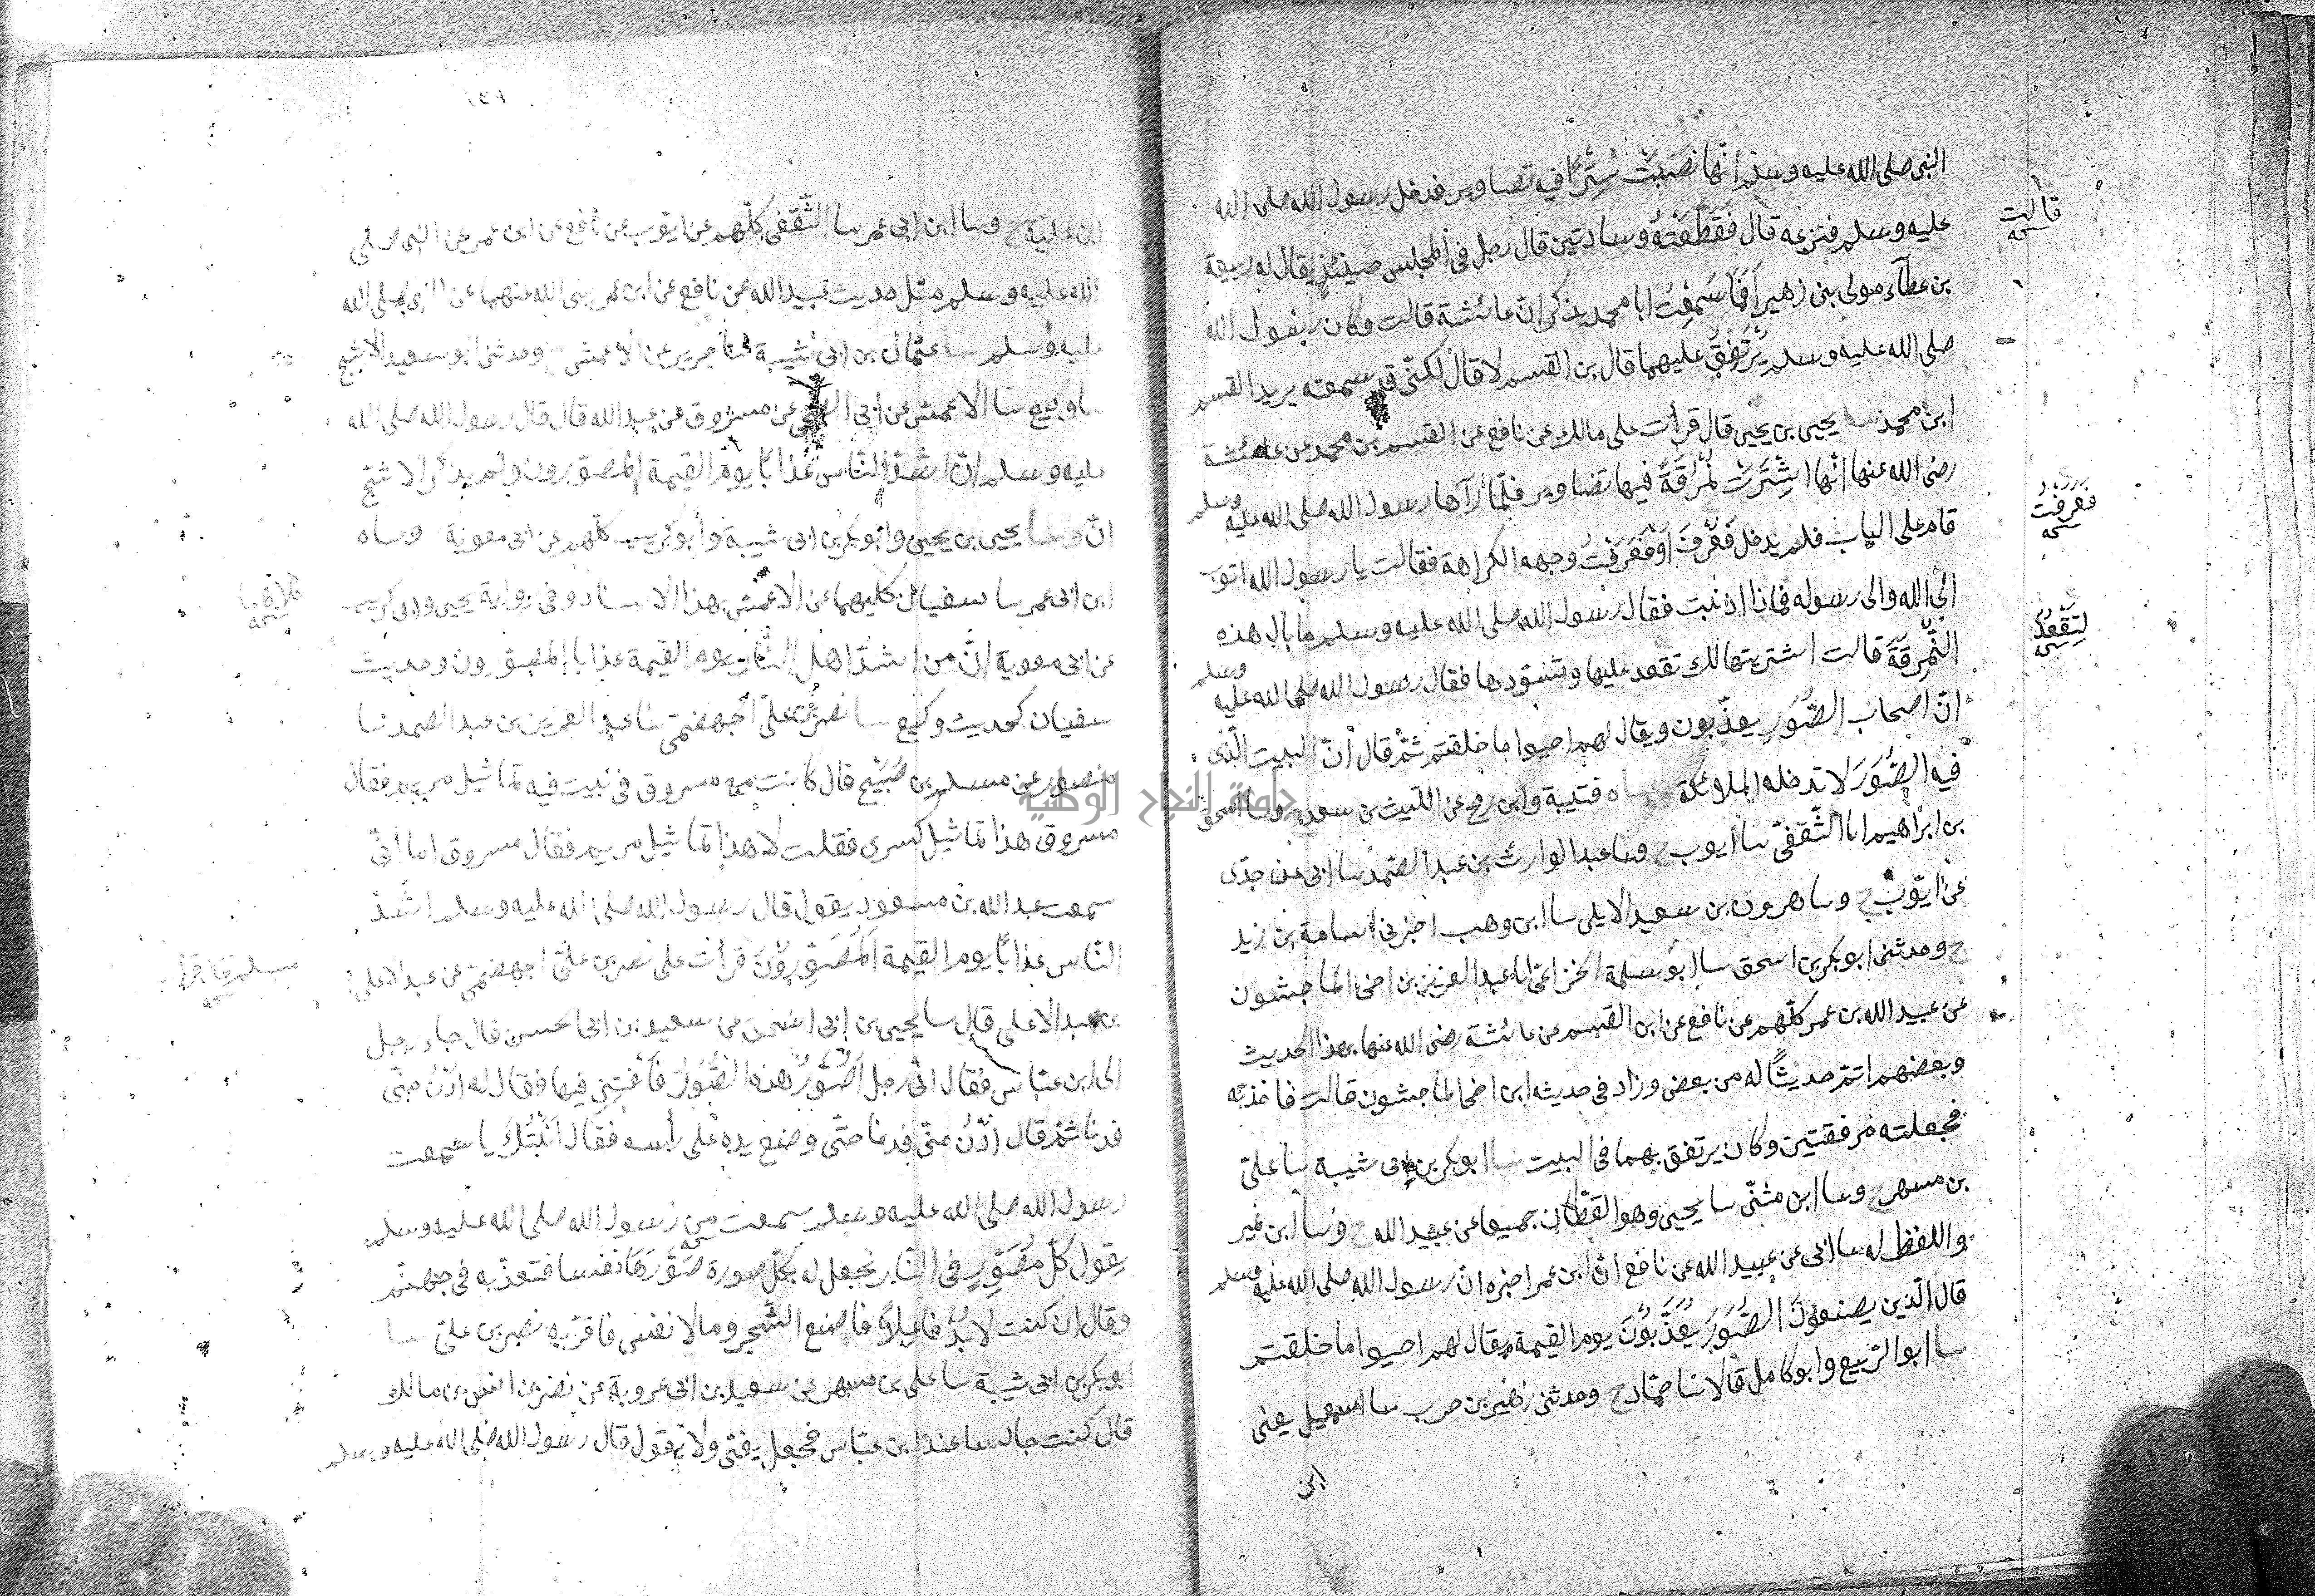 النبى صلى الله عليه وسلم انها نَصَبَتْ سِتْرًا فيه تصاوير فدخل رسول الله صلى الله
عليه وسلم فنزعه قال فَقَطَعْتُهُ وسادتين قال رجل فى المجلس حينئذٍ يقال له ربيعة
قالت
نسخه
بن عطآء مولى بنى زهير أَفَمَا سَمِعْتَ ابا محمد يذكر ان عائشة قالت وكان رسول الله
صلى الله عليه وسلم يَرْتَفِقُ عليهما قال بن القسم لا قال لكنّى قد سمعته يريد القسم
ابن محمد سا يحيى بن يحيى قال قرأت على مالك عن نافع عن القسم بن محمد عن عائشة
رضى الله عنها انّها اشْتَرَتْ نُمْرُقَةً فيها تصاوير فلمّا رآها رسول الله صلى الله عليه وسلم
قام على الباب فلم يدخل فَعَرَفَ أَوْ فَعَرَفْتُ وجهه الكراهة فقالت يا رسول الله اتوب
فعَرَفْتُ
نسخه
الى الله والى رسوله فماذا اذنبت فقال رسول الله صلى الله عليه وسلم ما بال هذه
النُّمْرِقَةِ قالت اشتريتها لك تقعد عليها وتتسّودها فقال رسول الله صلى الله عليه وسلم
لِتَقْعُدَ
نسخه
انّ اصحاب الصُّوَرِ يعذّبون ويقال لهم احيوا ما خلقتم ثمّ قال انّ البيت الّذى
فيه الصُّوَرَ لا تدخله الملائكة وساه قتيبة وابن رمح عن اللّيث بن سعد ح وسا اسحق
بن ابراهيم انا الثّقفىّ سا ايوب ح وسا عبد الوارث بن عبد الصّمد سا ابى عن جدّى
عن ايّوب ح وسا هرون بن سعيد الايلى سا ابن وهب اخبرنى اسامة بن زيد
ح وحدثنى ابو بكر بن اسحق سا ابو سلمة الخزاعىّ انا عبد العزيز بن اخى الماجشون
عن عبيد الله بن عمر كلّهم عن نافع عن ابن القسم عن عائشة رضى الله عنها بهذا الحديث
وبعضهم اتمّ حديثًا له من بعض وزاد فى حديثه ابن اخى الماجشون قالت فاخذتّه
فجعلته مرفقتين وكان يرتفق بهما فى البيت سا ابو بكر بن ابى شيبة سا علىّ
بن مسهر ح وسا ابن مثنّى سا يحيى وهو القطّان جميعا عن عبيد الله ح وسا ابن نمير
واللفظ له سا ابى عن عبيد الله عن نافع انّ ابن عمر اخبره ان رسول الله صلى الله عليه وسلم
قال الّذين يصنعونَ الصُّوَرَ يُعَذَّبُونَ يوم القيمة يقال لهم احيوا ما خلقتم
سا ابو الرّبيع وابو كامل قالا سا حمّاد ح وحدثنى زهير بن حرب سا اسمعيل يعنى
ابن
ابن عليّة ح وسا ابن ابى عمر سا الثّقفى كلّهم عن ايّوب عن نافع عن ابن عمر عن النبى صلى
الله عليه وسلم مثل حديث عبيد الله عن نافع عن ابن عمر رضى الله عنهما عن النبى صلى الله
عليه وسلم سا عثمان بن ابى شيبة سا جرير عن الاعمش ح وحدثنى ابو سعيد الاشج
سا وكيع سا الاعمش عن ابى الضحى عن مسروق عن عبد الله قال قال رسول الله صلى الله
عليه وسلم انّ اشدّ النّاس عذابًا يوم القيمة المصوّرون ولم يذكر الاشج
انّ وسا يحيى بن يحيى وابو بكر بن ابى شيبة وابو كريب كلّهم عن ابى معوية وساه
ابن ابى عمر سا سفيان كليهما عن الاعمش بهذا الاسناد وفى رواية يحيى وابى كريب
كلاهما
نسخه
عن ابى معوية انّ من اشدّ اهل النّار يوم القيمة عذابا المصوّرون وحديث
سفيان كحديث وكيع سا نصر بن علىّ الجهضمىّ سا عبد العزيز بن عبد الصمد سا
منصور عن مسلم بن صُبَيْح قال كنت مع مسروق فى بيت فيه تماثيل مريم فقال
مسروق هذا تماثيل كسرى فقلت لا هذا تماثيل مريم فقال مسروق اما انّى
سمعت عبد الله بن مسعود يقول قال رسول الله صلى الله عليه وسلم اشدّ
النّاس عذابًا يوم القيمة اَلْمُصَوِّرُونَ قرأت على نصر بن علىّ الجهضمىّ عن عبد الاعلى
بن عبد الاعلى قال سا يحيى بن ابى اسحق عن سعيد بن ابى الحسن قال جاء رجل
الى ابن عبّاس فقال انّى رجل اُصَوِّرُ هذه الصُّوَرَ فَأَفْتِنِى فيها فقال له ادْنُ منّى
فدنا ثمّ قال ادْنُ منّى فدنا حتّى وضع يده على رأسه فقال اُنَبِّئُكَ بما سمعت
رسول الله صلى الله عليه وسلم سمعت من رسول الله صلى الله عليه وسلم
يقول كلّ مُصَوِّرٍ فى النّار يجعل له بكلّ صورة صَوَّرَهَا نفسا فتعذّبه فى جهنّم
وقال ان كنت لا بُدَّ فاعلًا فاصنع الشّجر وما لا نفس فاقرّ به نصر بن علىّ سا
ابو بكر بن ابى شيبة سا على بن مسهر عن سعيد بن ابى عروبة عن نضر بن انس بن مالك
قال كنت جالسا عند ابن عبّاس فجعل يفتى ولا يقول قال رسول الله صلى الله عليه وسلم
جامعة النجاح الوطنية